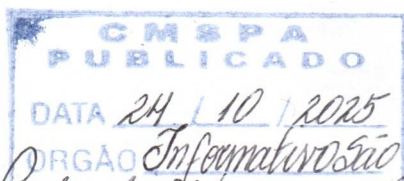 CMSPA
PUBLICADO
DATA 24 / 10 / 2025
ORGÃO Informativo São